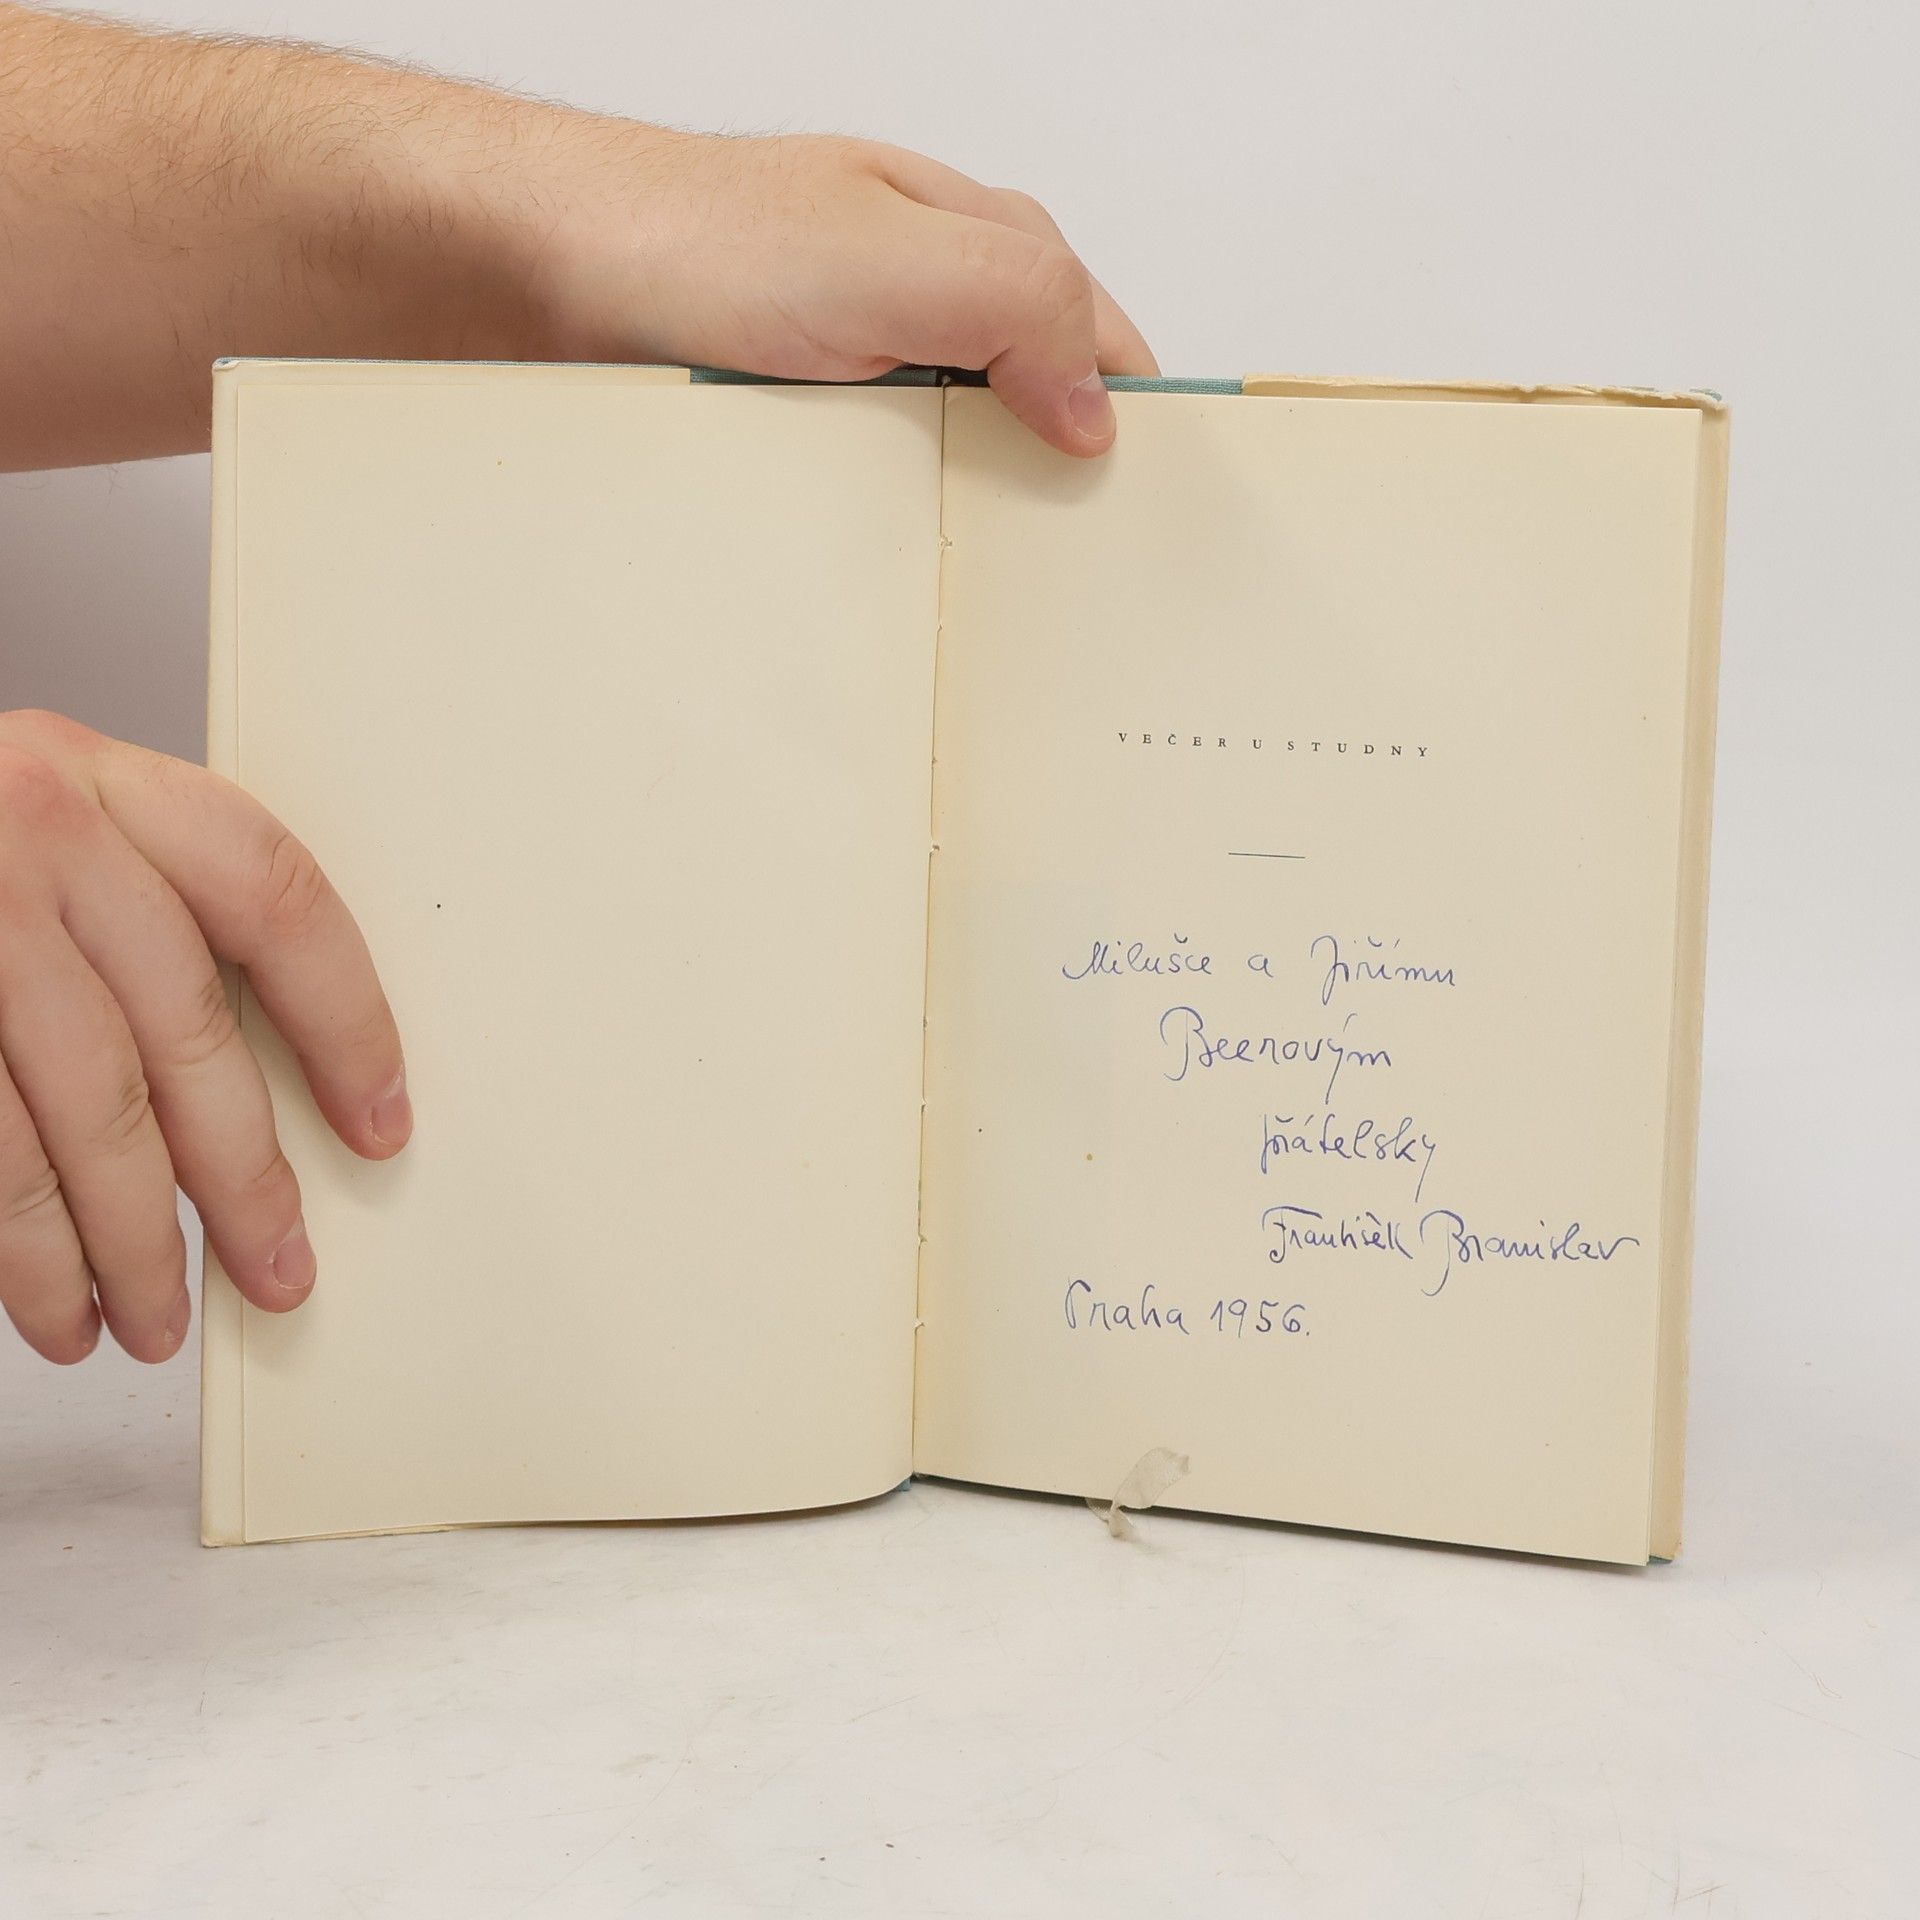 VEČER U STUDNY
Milušce a Jiřímu
Beerovým
přátelsky
František Branislav
Praha 1956.